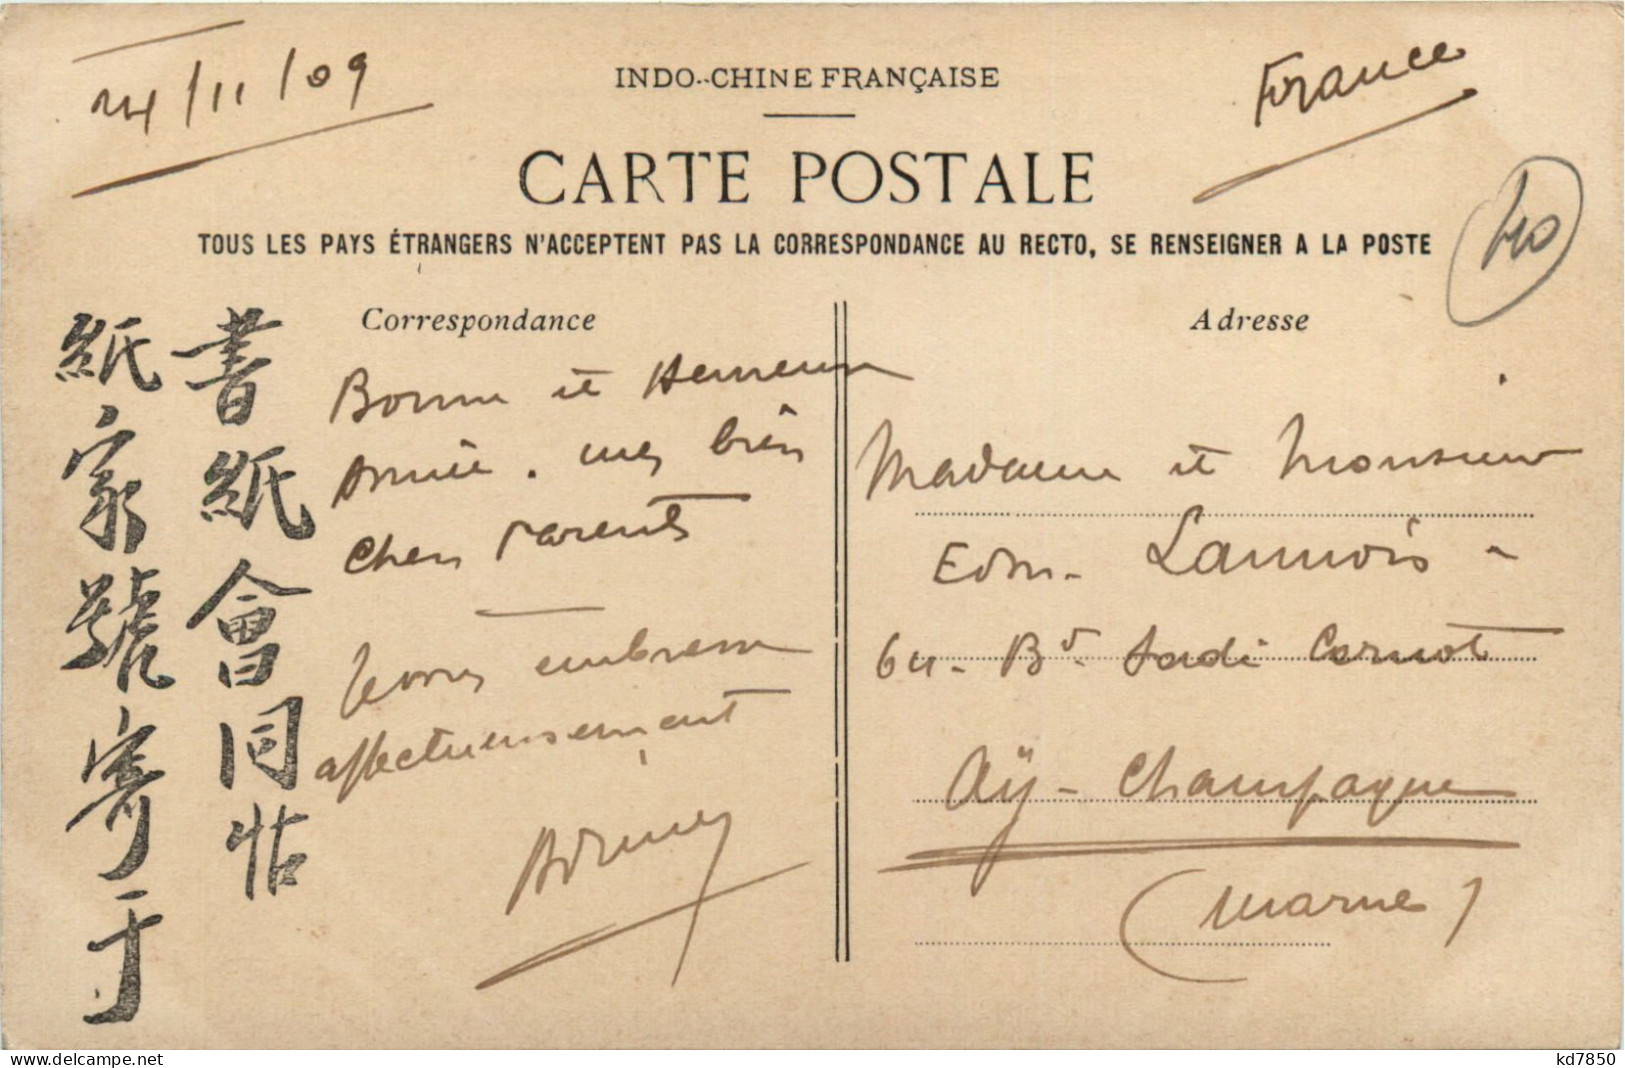 14/11/09
INDO-CHINE FRANÇAISE
France
CARTE POSTALE
TOUS LES PAYS ÉTRANGERS N'ACCEPTENT PAS LA CORRESPONDANCE AU RECTO, SE RENSEIGNER A LA POSTE
40
書紙會同帖
紙家號寄于
Correspondance
Bonne et Heureuse
Année. mes bien
Chers Parents
Vous embrasse
affectueusement
Adresse
Madame et Monsieur
Edm. Lannois -
64 - Bd. Sadi Carnot
Aÿ - Champagne
(Marne)
www.delcampe.net
kd7850